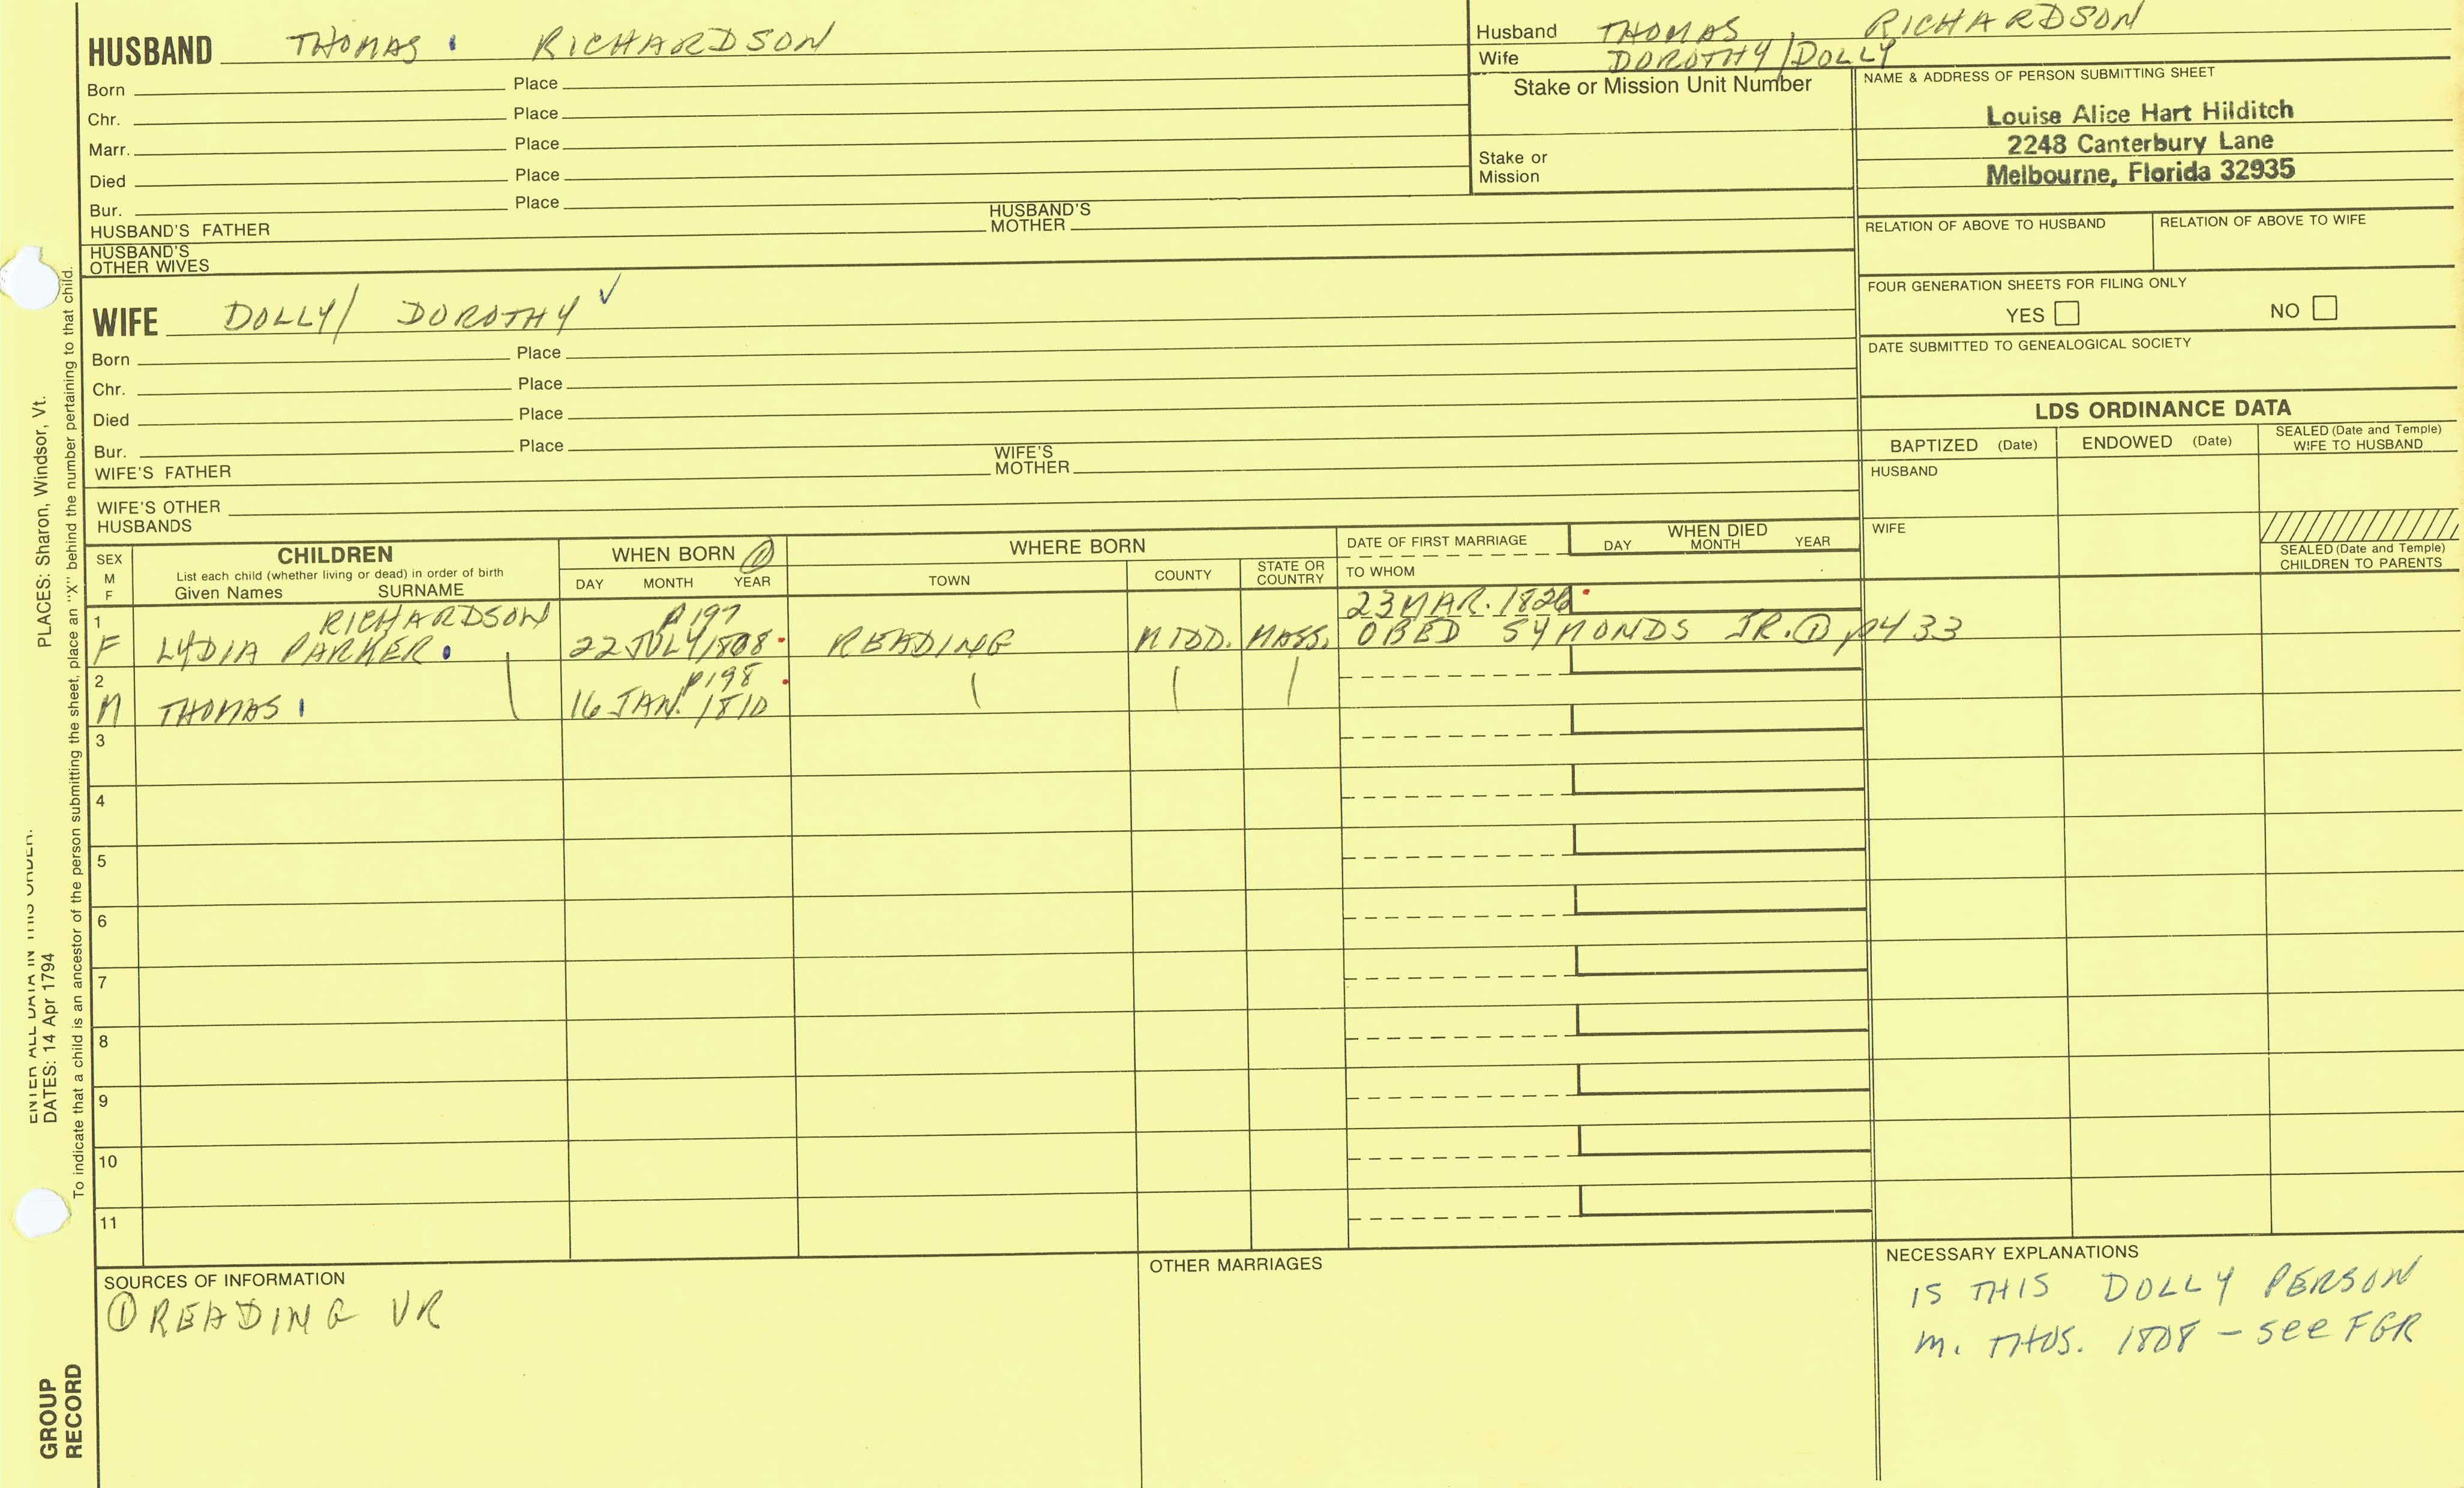 HUSBAND THOMAS RICHARDSON
Born Place
Chr. Place
Marr. Place
Died Place
Bur. Place
HUSBAND'S FATHER HUSBAND'S MOTHER
HUSBAND'S OTHER WIVES
Husband THOMAS RICHARDSON
Wife DOROTHY/DOLLY
Stake or Mission Unit Number
Stake or Mission
NAME & ADDRESS OF PERSON SUBMITTING SHEET
Louise Alice Hart Hilditch
2248 Canterbury Lane
Melbourne, Florida 32935
RELATION OF ABOVE TO HUSBAND RELATION OF ABOVE TO WIFE
FOUR GENERATION SHEETS FOR FILING ONLY
YES NO
DATE SUBMITTED TO GENEALOGICAL SOCIETY
WIFE DOLLY/ DOROTHY ✓
Born Place
Chr. Place
Died Place
Bur. Place
WIFE'S FATHER WIFE'S MOTHER
WIFE'S OTHER HUSBANDS
LDS ORDINANCE DATA
BAPTIZED (Date) ENDOWED (Date) SEALED (Date and Temple) WIFE TO HUSBAND
HUSBAND
WIFE
SEALED (Date and Temple) CHILDREN TO PARENTS
SEX M F
CHILDREN
List each child (whether living or dead) in order of birth
Given Names SURNAME
WHEN BORN ①
DAY MONTH YEAR
WHERE BORN
TOWN COUNTY STATE OR COUNTRY
DATE OF FIRST MARRIAGE
TO WHOM
WHEN DIED
DAY MONTH YEAR
1 RICHARDSON p197 23 MAR. 1826
F LYDIA PARKER 22 JULY 1808 READING MIDD. MASS. OBED SYMONDS JR. ① p433
2 p198
M THOMAS 16 JAN. 1810
3
4
5
6
7
8
9
10
11
SOURCES OF INFORMATION
① READING VR
OTHER MARRIAGES
NECESSARY EXPLANATIONS
IS THIS DOLLY PERSON
m. THOS. 1808 – see FGR
ENTER ALL DATA IN THIS ORDER:
DATES: 14 Apr 1794
PLACES: Sharon, Windsor, Vt.
To indicate that a child is an ancestor of the person submitting the sheet, place an "X" behind the number pertaining to that child.
GROUP
RECORD